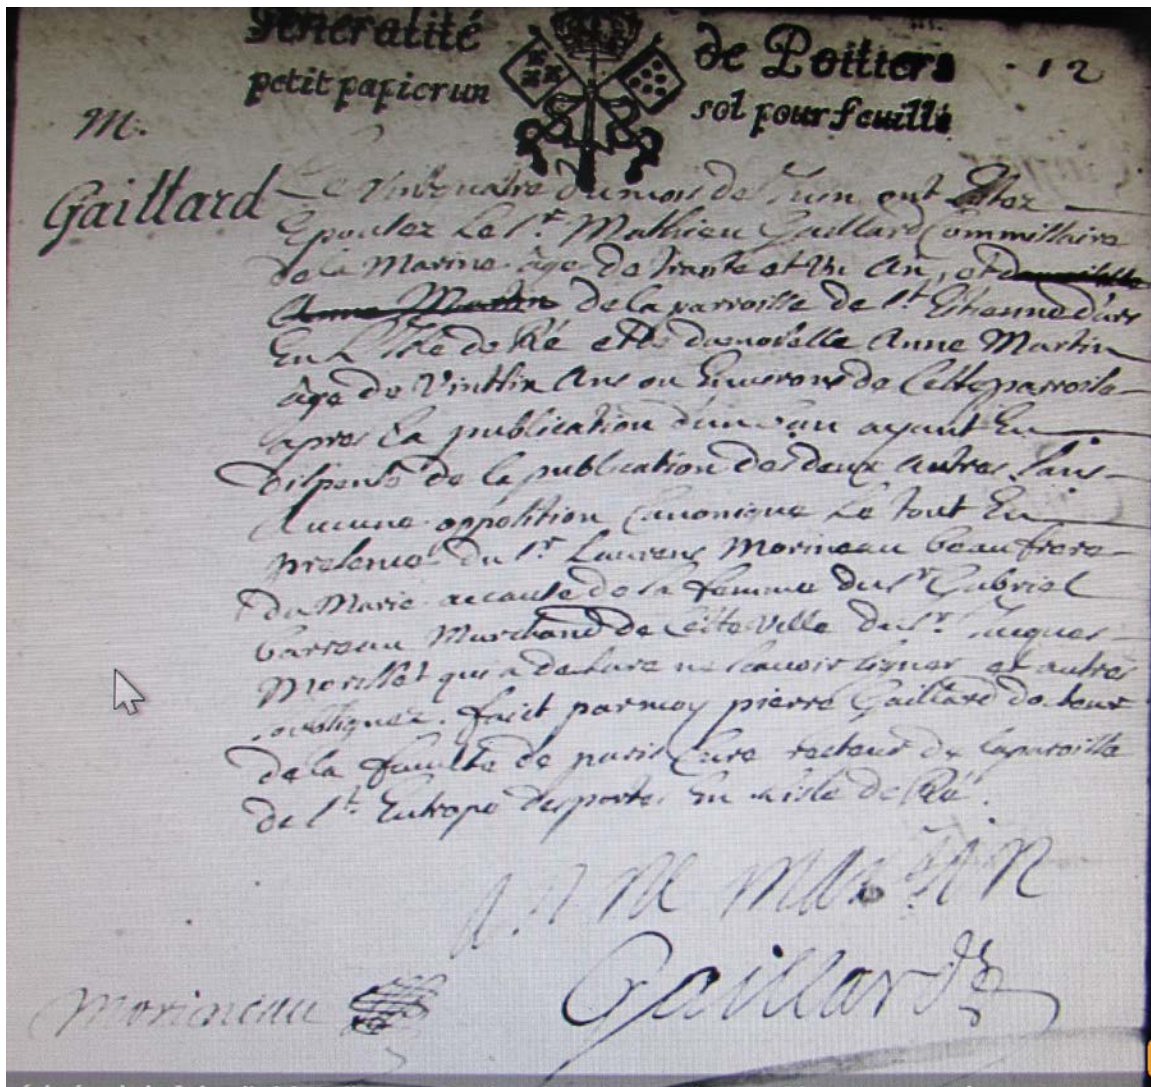 Generalité de Poitiers
petit papier un sol pour feuille
12
M.
Gaillard
Le vintquatre du mois de Juin ont Estez
Epousez Le Sr. Mathieu Gaillard Commissaire
de la Marine âge de trante et Un An, et damoiselle
Anne Martin de la parroisse de St. Etienne d'ars
En L'Isle de Ré et damoiselle Anne Martin
âge de Vintsix Ans ou Environs de Cette parroisse
apres La publication d'un ban ayant Eu
dispense de la publication des deux autres Sans
Aucune opposition Canonique Le tout En
presence du Sr. Laurens Morineau beau frere
du Marie a cause de sa femme du Sr Gabriel
barreau Marchand de Cette Ville du Sr. Jacques
Morillet qui a declare ne scavoir signer et autres
soubsignez. faict par moy pierre Gaillard docteur
de la faculte de paris Cure recteur de la paroisse
de St. Eutrope des portes En L'isle de Ré.
anne martin
Morineau
Gaillard